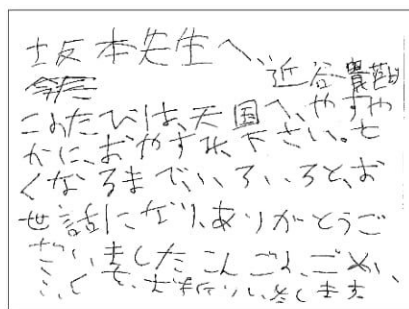 坂本先生へ、
近谷貴
このたびは、天国へ、やすや
かに、おやすみ、下さい。亡
くなるまで、いろいろと、お
世話になり、ありがとうご
ざいました、こんごの、ご
ます